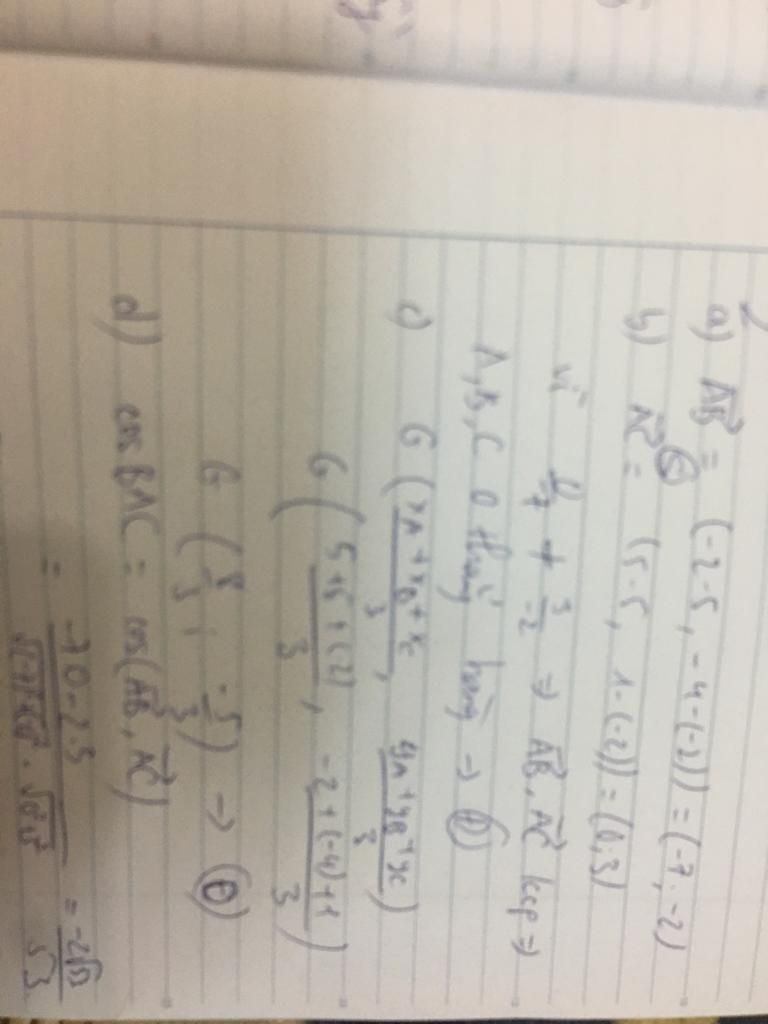 a) AB = (-2-5, -4-(-2)) = (-7, -2)
b) AC = (5-5, 1-(-2)) = (0; 3)
vì 0/-7 ≠ 3/-2 ⇒ AB, AC kcp ⇒
A, B, C 0 thẳng hàng → Đ
c) G (xA + xB + xC / 3, yA + yB + yC / 3)
G (5+5+(-2) / 3, -2+(-4)+1 / 3)
G (8/3 ; -5/3) → Đ
d) cos BAC = cos(AB, AC)